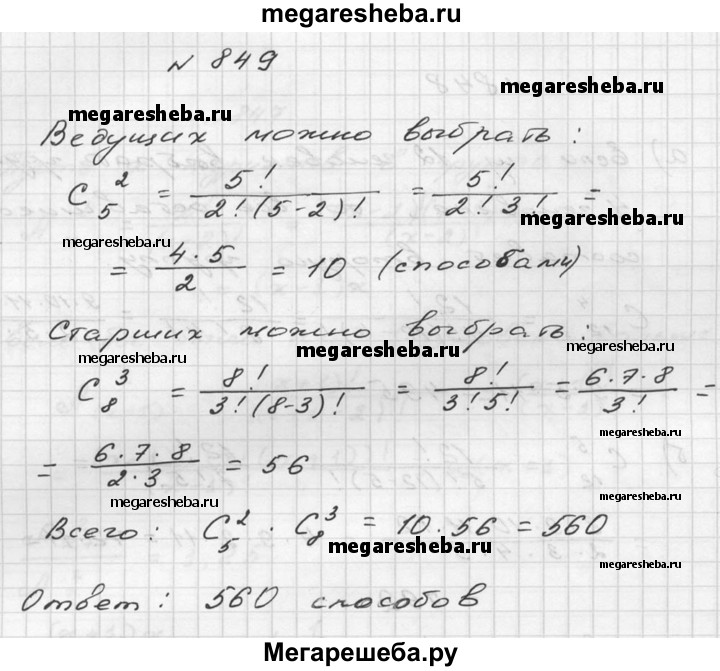 megaresheba.ru
N 849
megaresheba.ru
megaresheba.ru
Ведущих можно выбрать:
C₅² = 5!/(2!(5-2)!) = 5!/(2!3!) =
megaresheba.ru
megaresheba.ru
= (4·5)/2 = 10 (способами)
Старших можно выбрать:
megaresheba.ru
megaresheba.ru
megaresheba.ru
C₈³ = 8!/(3!(8-3)!) = 8!/(3!5!) = (6·7·8)/3! =
megaresheba.ru
= (6·7·8)/(2·3) = 56
megaresheba.ru
Всего: C₅² · C₈³ = 10·56 = 560
megaresheba.ru
megaresheba.ru
Ответ: 560 способов
Мегарешеба.ру